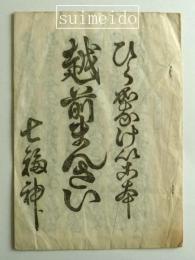 © suimeido
ひらがなけいこ本
越前まんざい
七福神